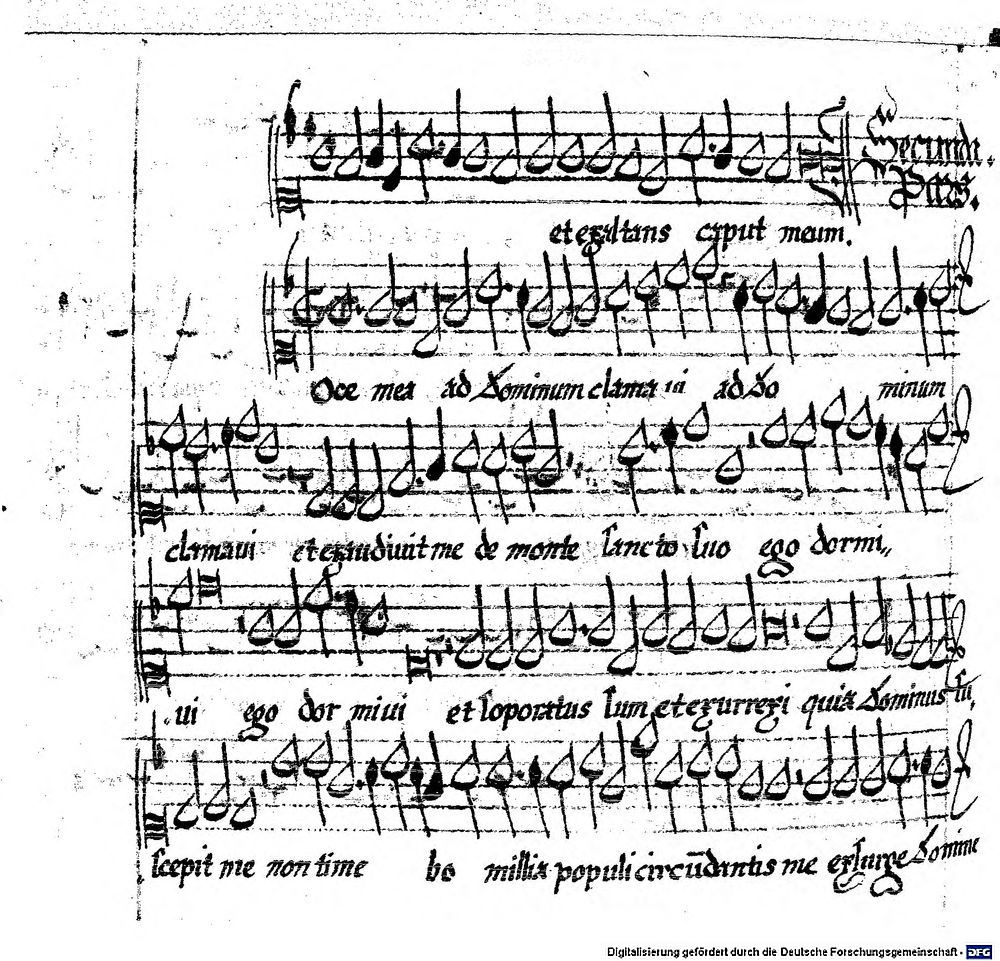 Secunda.
Pars.
et exaltans caput meum.
Oce mea ad Dominum clama ui ad Do minum
clamaui et exaudiuit me de monte sancto suo ego dormi,,
ui ego dor miui et soporatus sum et exurrexi quia Dominus su,
scepit me non time bo millia populi circūdantis me exsurge Domine
Digitalisierung gefördert durch die Deutsche Forschungsgemeinschaft - DFG